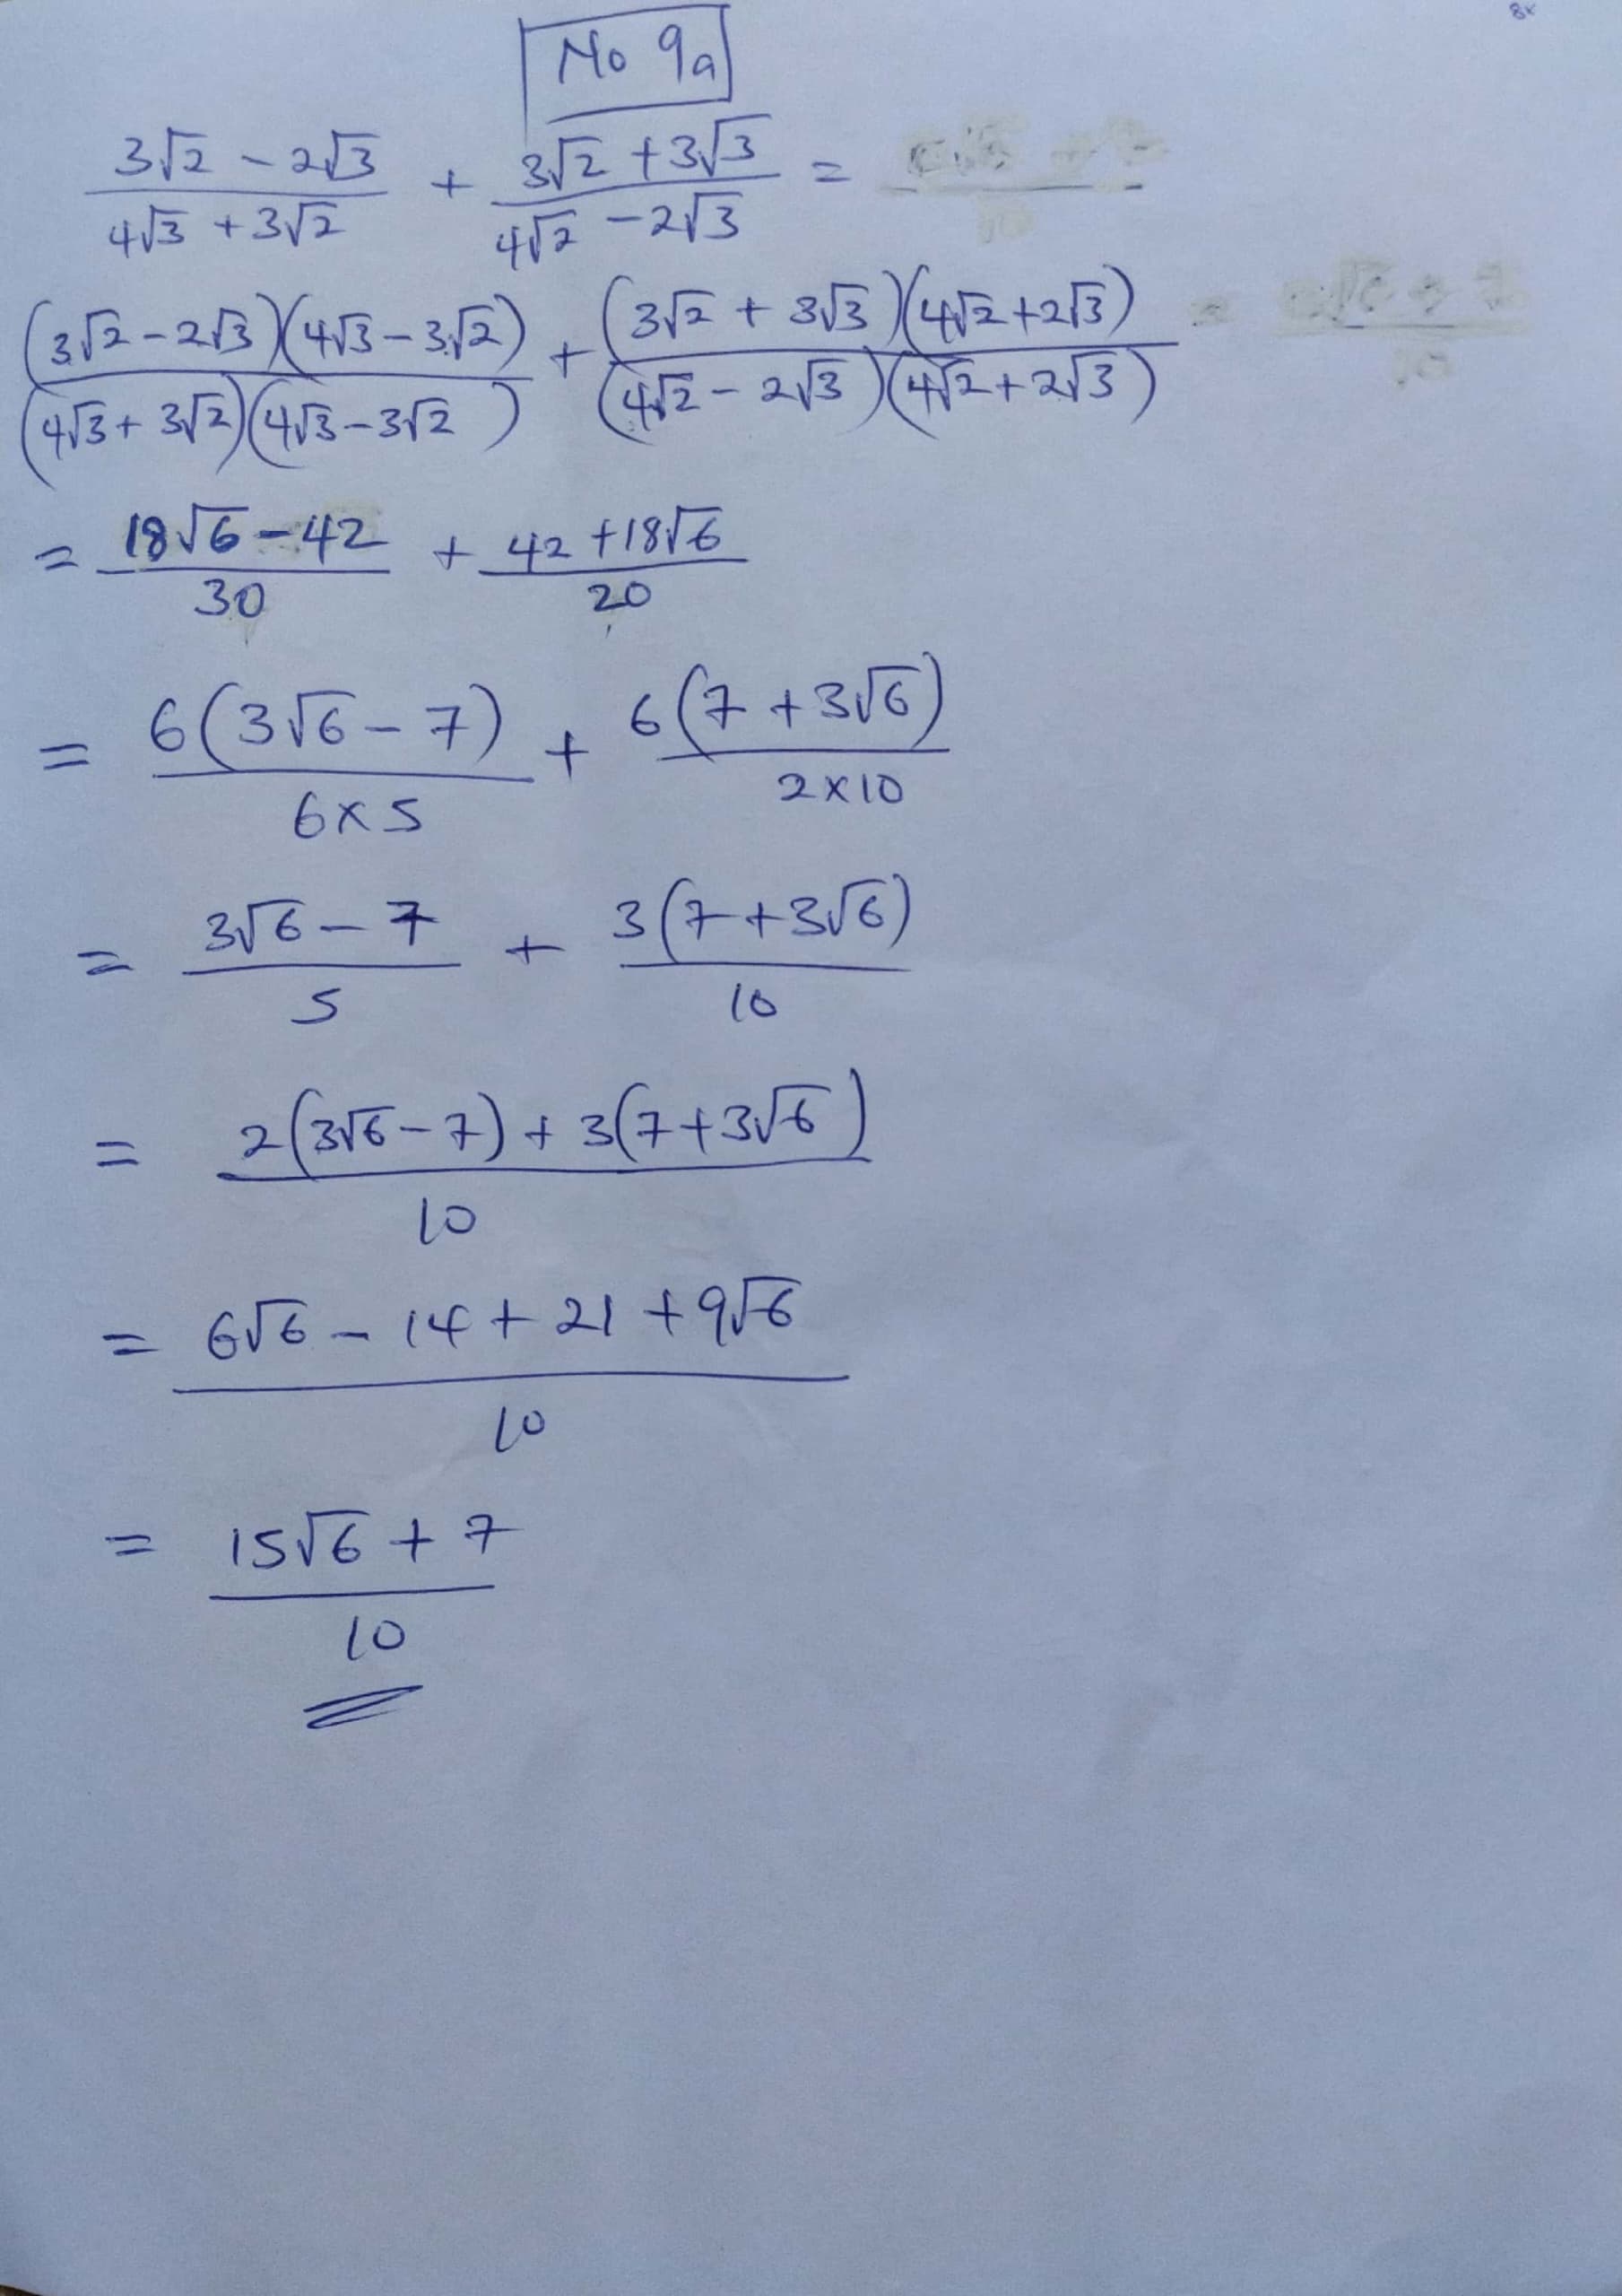 No 9a
(3√2 - 2√3)/(4√3 + 3√2) + (3√2 + 3√3)/(4√2 - 2√3) =
((3√2 - 2√3)(4√3 - 3√2))/((4√3 + 3√2)(4√3 - 3√2)) + ((3√2 + 3√3)(4√2 + 2√3))/((4√2 - 2√3)(4√2 + 2√3))
= (18√6 - 42)/30 + (42 + 18√6)/20
= 6(3√6 - 7)/(6×5) + 6(7 + 3√6)/(2×10)
= (3√6 - 7)/5 + 3(7 + 3√6)/10
= (2(3√6 - 7) + 3(7 + 3√6))/10
= (6√6 - 14 + 21 + 9√6)/10
= (15√6 + 7)/10